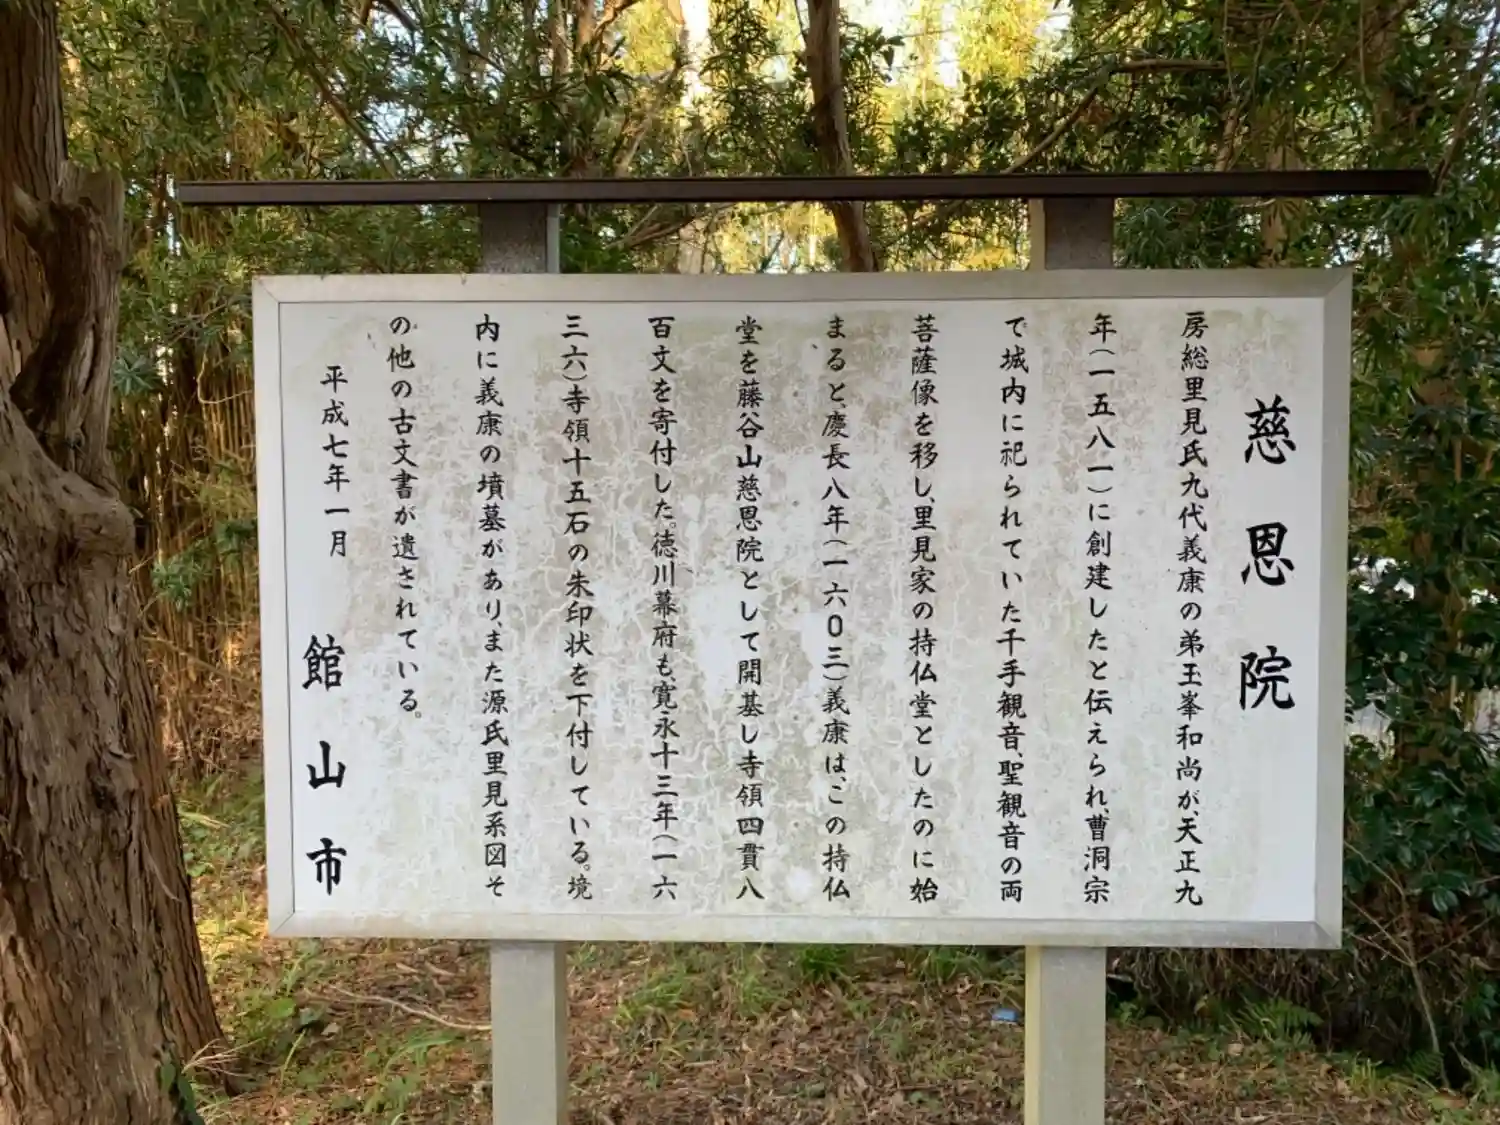 慈恩院
房総里見氏九代義康の弟玉峯和尚が、天正九
年（一五八一）に創建したと伝えられ、曹洞宗
で城内に祀られていた千手観音、聖観音の両
菩薩像を移し、里見家の持仏堂としたのに始
まると、慶長八年（一六〇三）義康は、この持仏
堂を藤谷山慈恩院として開基し寺領四貫八
百文を寄付した。徳川幕府も、寛永十三年（一六
三六）寺領十五石の朱印状を下付している。境
内に義康の墳墓があり、また源氏里見系図そ
の他の古文書が遺されている。
平成七年一月
館山市